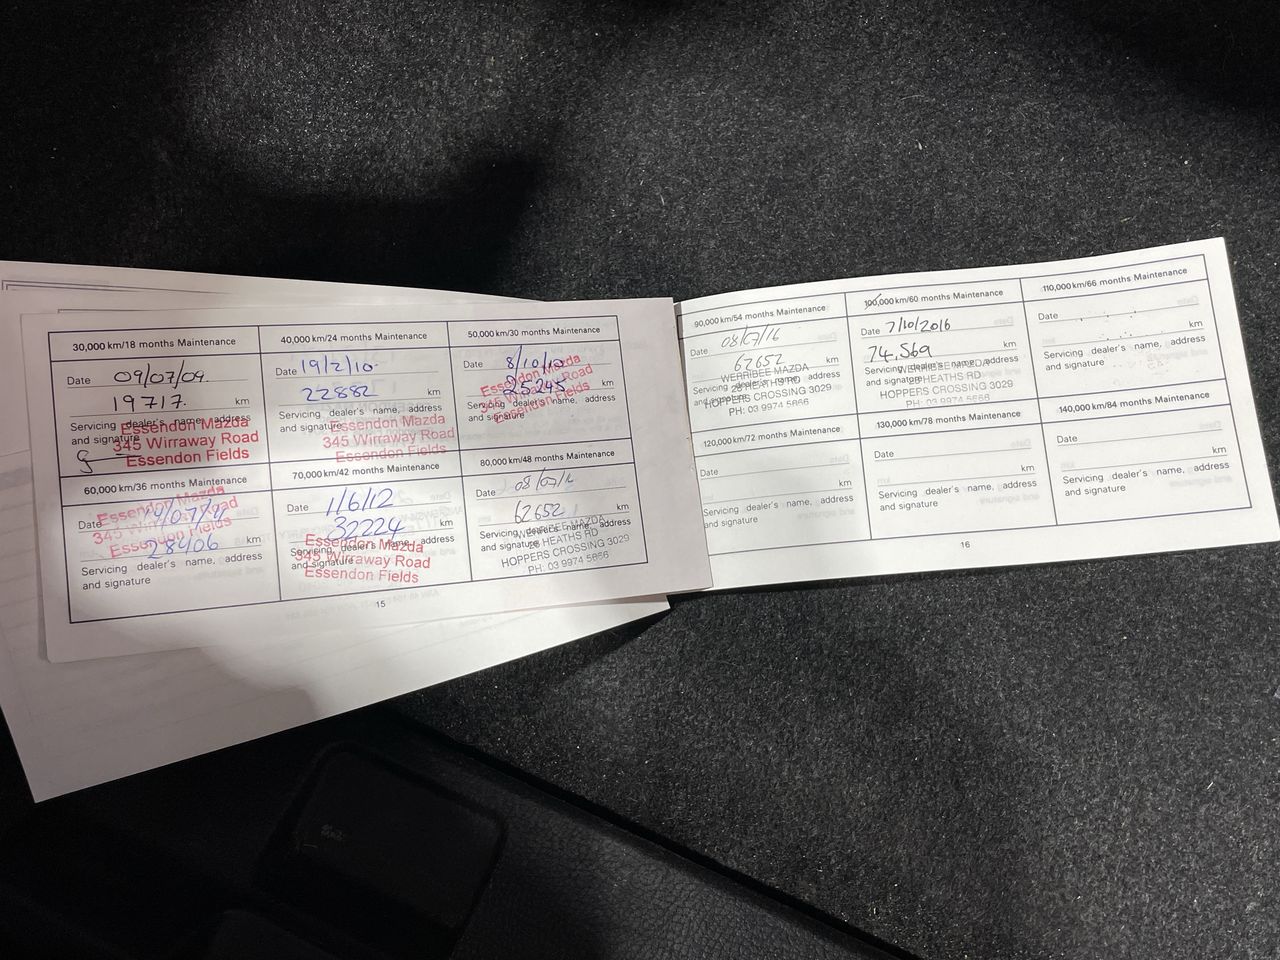 30,000 km/18 months Maintenance
Date 09/07/09.
19717. km
Servicing dealer's name, address
and signature
Essendon Mazda
345 Wirraway Road
Essendon Fields
40,000 km/24 months Maintenance
Date 19/2/10
22882 km
Servicing dealer's name, address
and signature
Essendon Mazda
345 Wirraway Road
Essendon Fields
50,000 km/30 months Maintenance
Date 8/10/10
25245 km
Servicing dealer's name, address
and signature
Essendon Mazda
345 Wirraway Road
Essendon Fields
60,000 km/36 months Maintenance
Date
28406 km
Servicing dealer's name, address
and signature
Essendon Mazda
345 Wirraway Road
Essendon Fields
70,000 km/42 months Maintenance
Date 1/6/12
32224 km
Servicing dealer's name, address
and signature
Essendon Mazda
345 Wirraway Road
Essendon Fields
80,000 km/48 months Maintenance
Date 08/07/16
62652 km
Servicing dealer's name, address
and signature
WERRIBEE MAZDA
28 HEATHS RD
HOPPERS CROSSING 3029
PH: 03 9974 5666
15
90,000 km/54 months Maintenance
Date 08/07/16
62652 km
Servicing dealer's name, address
and signature
WERRIBEE MAZDA
28 HEATHS RD
HOPPERS CROSSING 3029
PH: 03 9974 5666
100,000 km/60 months Maintenance
Date 7/10/2016
74,569 km
Servicing dealer's name, address
and signature
WERRIBEE MAZDA
28 HEATHS RD
HOPPERS CROSSING 3029
PH: 03 9974 5666
110,000 km/66 months Maintenance
Date
km
Servicing dealer's name, address
and signature
120,000 km/72 months Maintenance
Date
km
Servicing dealer's name, address
and signature
130,000 km/78 months Maintenance
Date
km
Servicing dealer's name, address
and signature
140,000 km/84 months Maintenance
Date
km
Servicing dealer's name, address
and signature
16